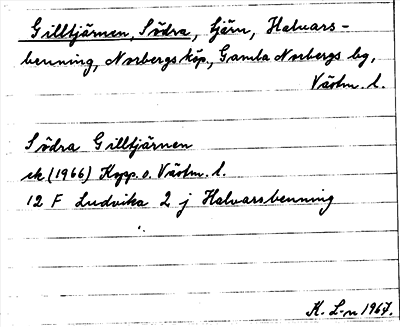 Gilltjärnen, Södra, tjärn, Halvars-
benning, Norbergs köp., Gamla Norbergs bg,
Västm. l.
Södra Gilltjärnen
ek (1966) Kopp. o. Västm. l.
12 F Ludvika 2 j Halvarsbenning
K. L-n 1967.